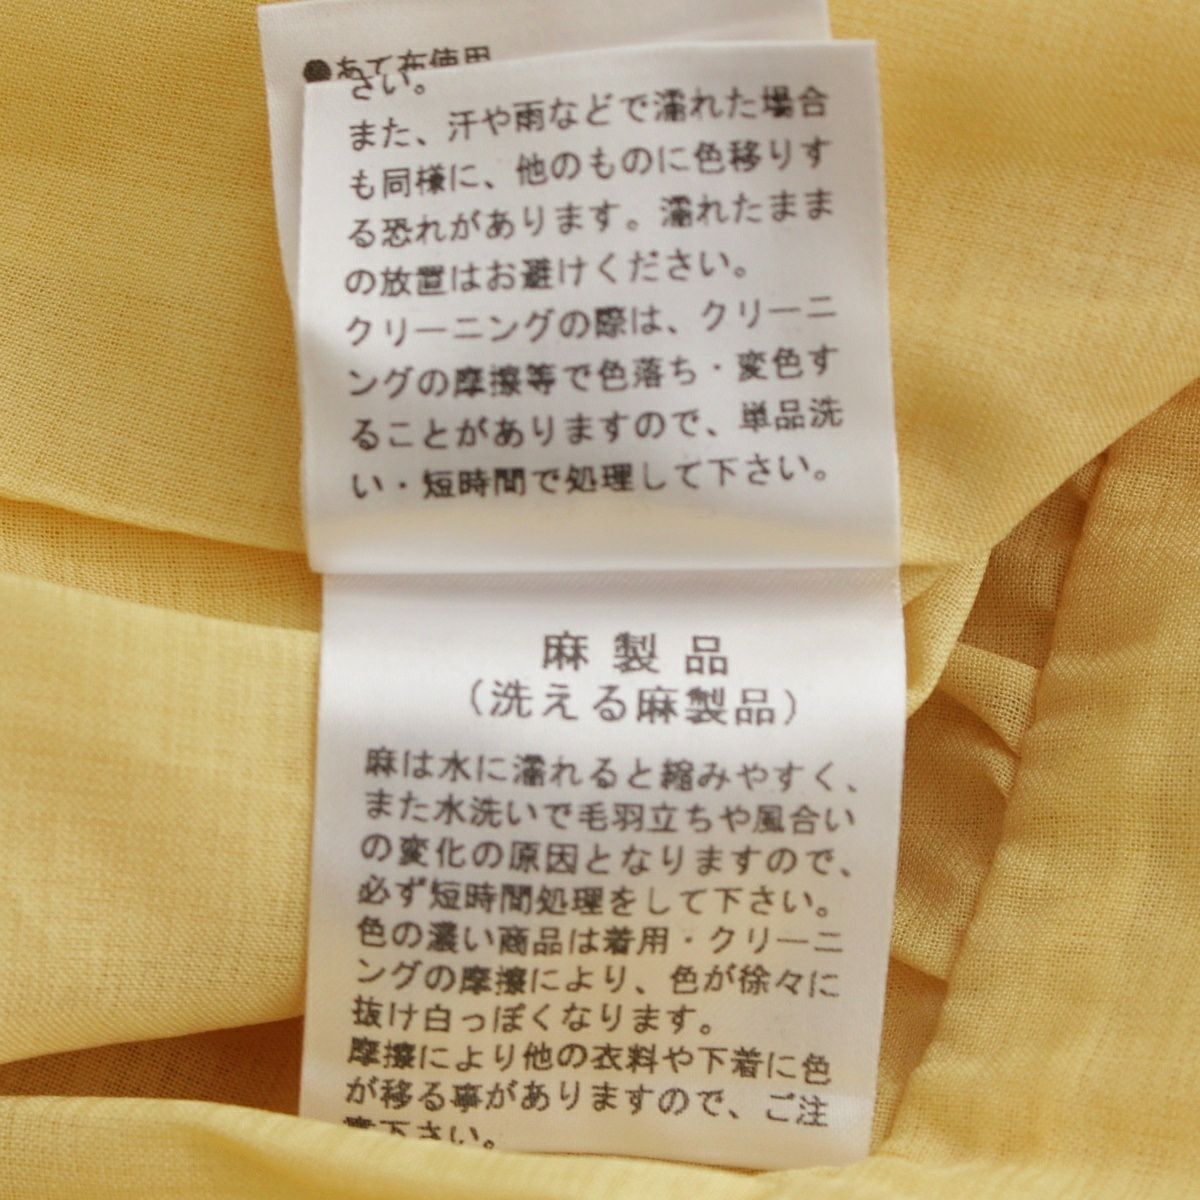 ●あて布使用
さい。
また、汗や雨などで濡れた場合
も同様に、他のものに色移りす
る恐れがあります。濡れたまま
の放置はお避けください。
クリーニングの際は、クリーニ
ングの摩擦等で色落ち・変色す
ることがありますので、単品洗
い・短時間で処理して下さい。
麻製品
(洗える麻製品)
麻は水に濡れると縮みやすく、
また水洗いで毛羽立ちや風合い
の変化の原因となりますので、
必ず短時間処理をして下さい。
色の濃い商品は着用・クリーニ
ングの摩擦により、色が徐々に
抜け白っぽくなります。
摩擦により他の衣料や下着に色
が移る事がありますので、ご注
意下さい。